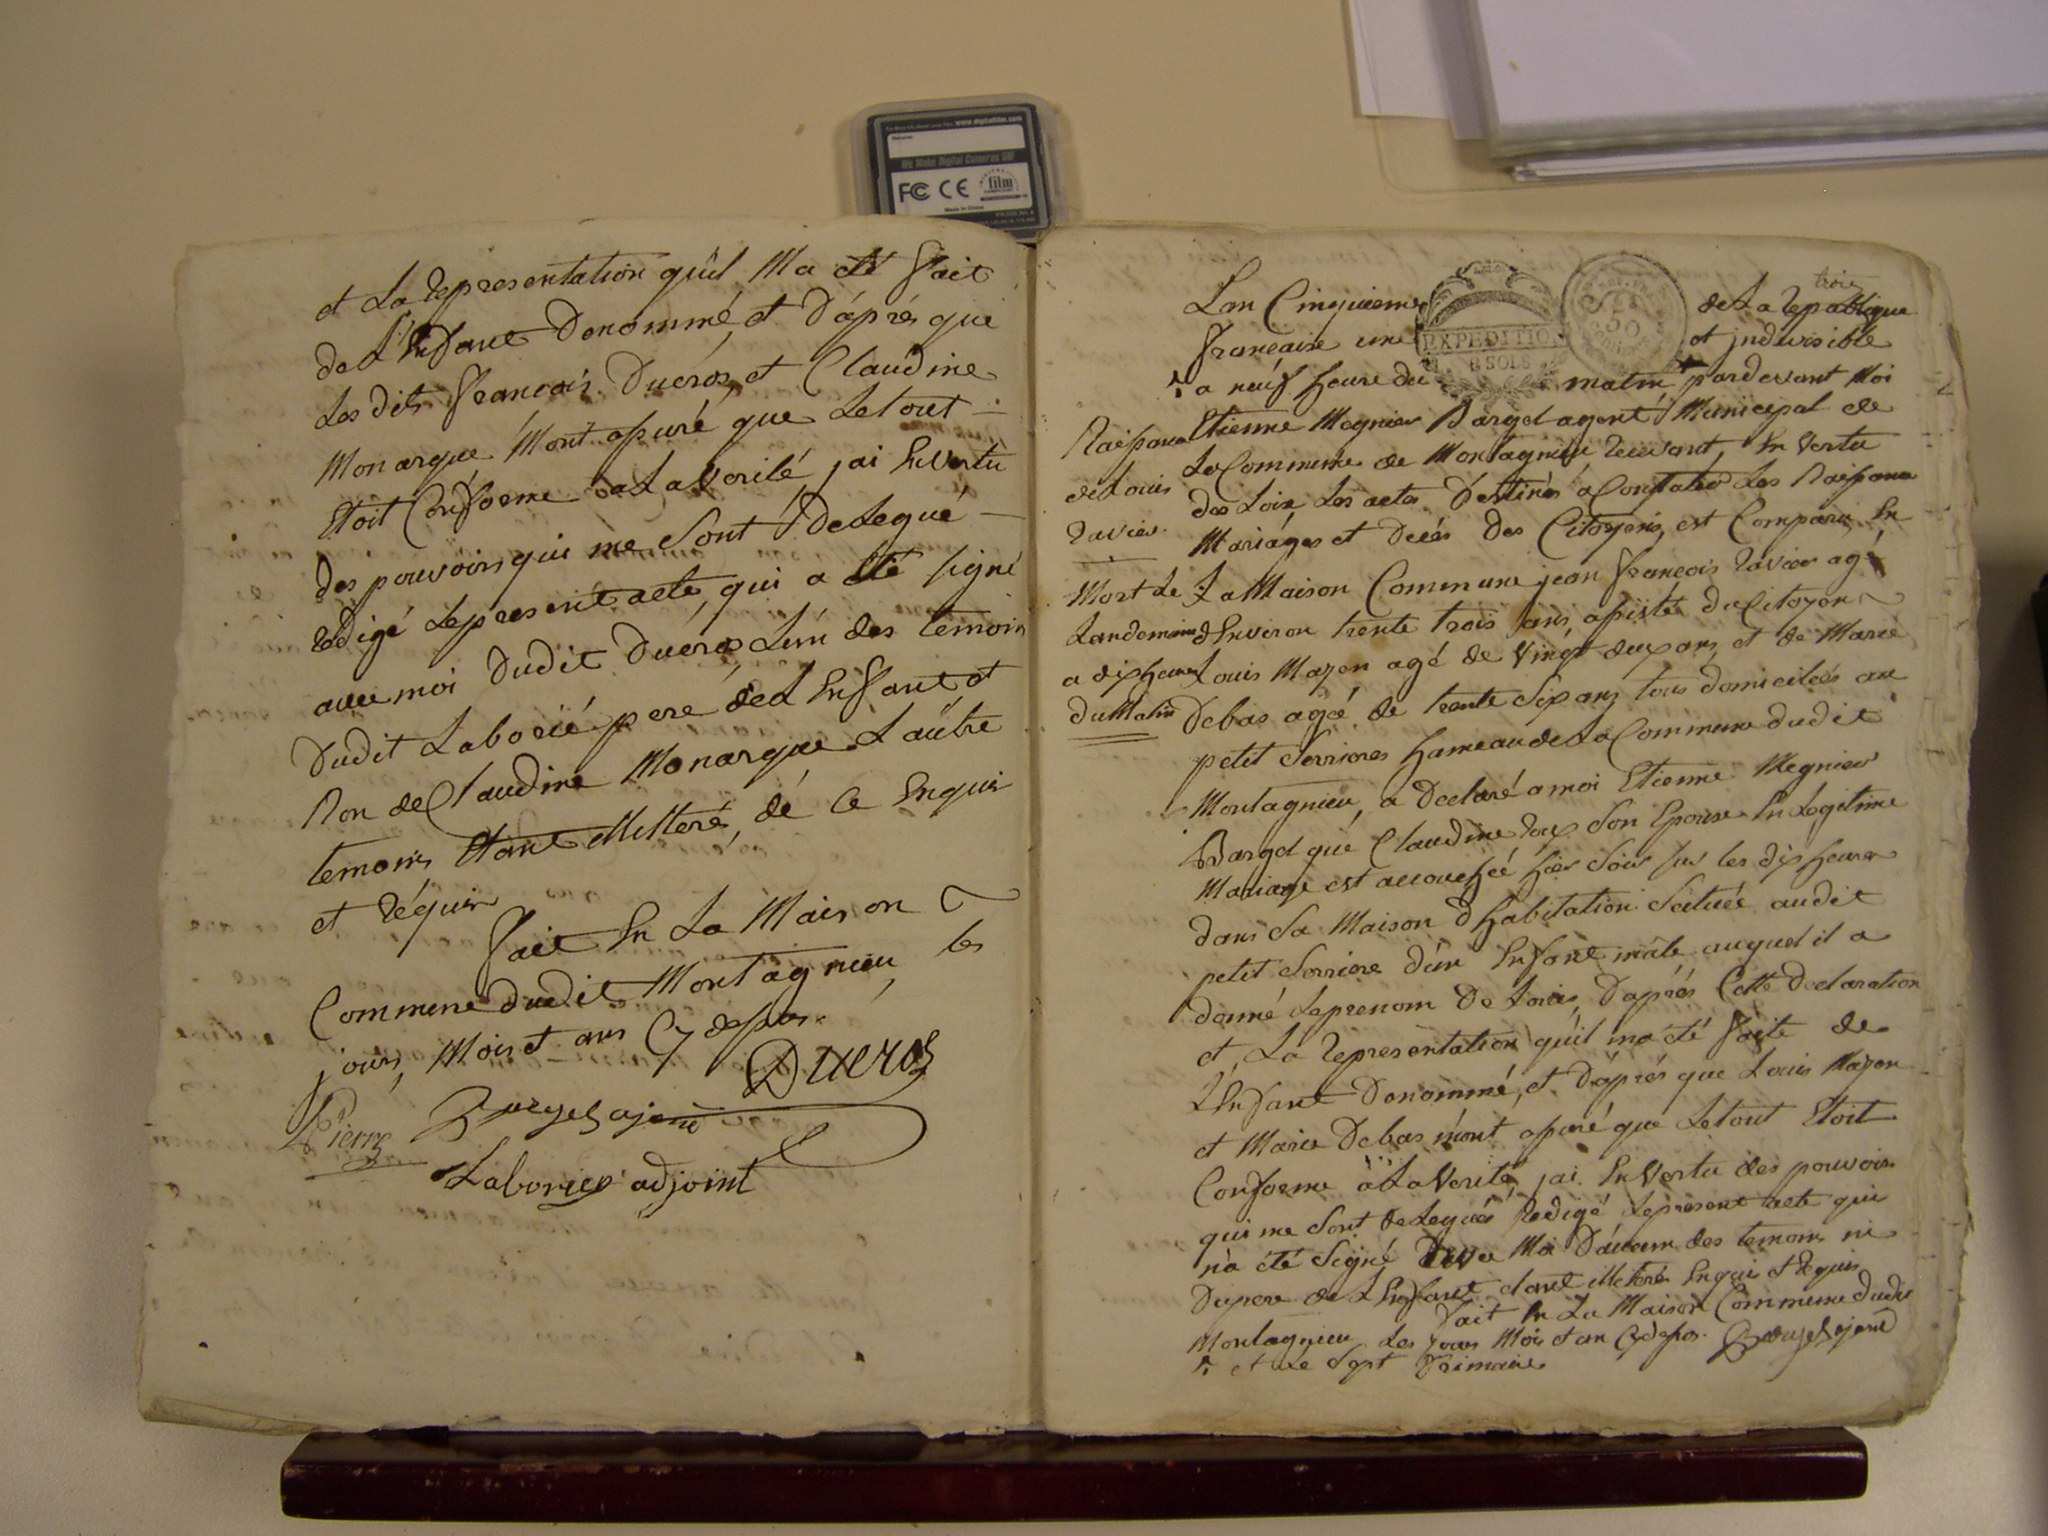 www.digitalfilm.com
We Make Digital Cameras GO!
FC CE film
Made in China
et La representation qu'il Ma eté fait
de L'Enfant Denommé, et D'aprés que
Les dits francois Ducros, et Claudine
Monarque Mont assuré que Letout
Etoit Conforme a La verité, jai En vertu
des pouvoirs qui me Sont Delegué
redigé Lepresent acte, qui a eté signé
avec moi Dudit Ducros Lun des temoin
Dudit Laborié pere de L'Enfant et
Non de Claudine Monarque L'autre
temoins Etant illitteré, dé Ce Enquis
et réquis
fait En La Maison
Commune dudit Montagnieu, les
jours, Mois et ans Cy dessus.
Ducros
Pierre
Bargel agent
Laborier adjoint
trois
Lan Cinquieme de La republique
française une et jndivisible
EXPEDITION
8 SOLS
a neuf heure du matin pardevant Moi
Etienne Megnier Bargel agent Municipal de
La Commune de Montagnieu recevant, En vertu
des Loix Les actes Destinés a Constater Les Naissance
Mariages et Decés des Citoyens, est Comparu En
La Maison Commune jean françois ravier agé
d'Environ trente trois ans, assisté du Citoyen
Louis Mazen agé de vingt deux ans et de Marie
Debas agé de trente Six ans tous domiciliés au
petit Serrieres hameau de La Commune dudit
Montagnieu, a Declaré a moi Etienne Megnier
Bargel que Claudine roux Son Epouse En Legitime
Mariage est accouchée hier Soir sur les dix heures
dans Sa Maison d'habitation Scituée audit
petit Serriere d'un Enfant mâle auquel il a
donné Leprenom De Louis, D'aprés Cette Declaration
et La representation qu'il ma eté faite de
L'Enfant Denommé, et D'aprés que Louis Mazen
et Marie Debas m'ont assuré que Letout Etoit
Conforme à La Verité, jai En Vertu des pouvoirs
qui me Sont Delegués redigé Lepresent acte qui
n'a eté Signé avec Moi D'aucun des temoins ni
Dupere de L'Enfant etant illeteré Enquis et Requis
fait En La Maison Commune dudit
Montagnieu Les jours Mois et an Cy dessus. Bargel agent
et Le Sept frimaire
Naissance
de Louis
ravier
Mort Le
Landemain
a dix heures
du Matin